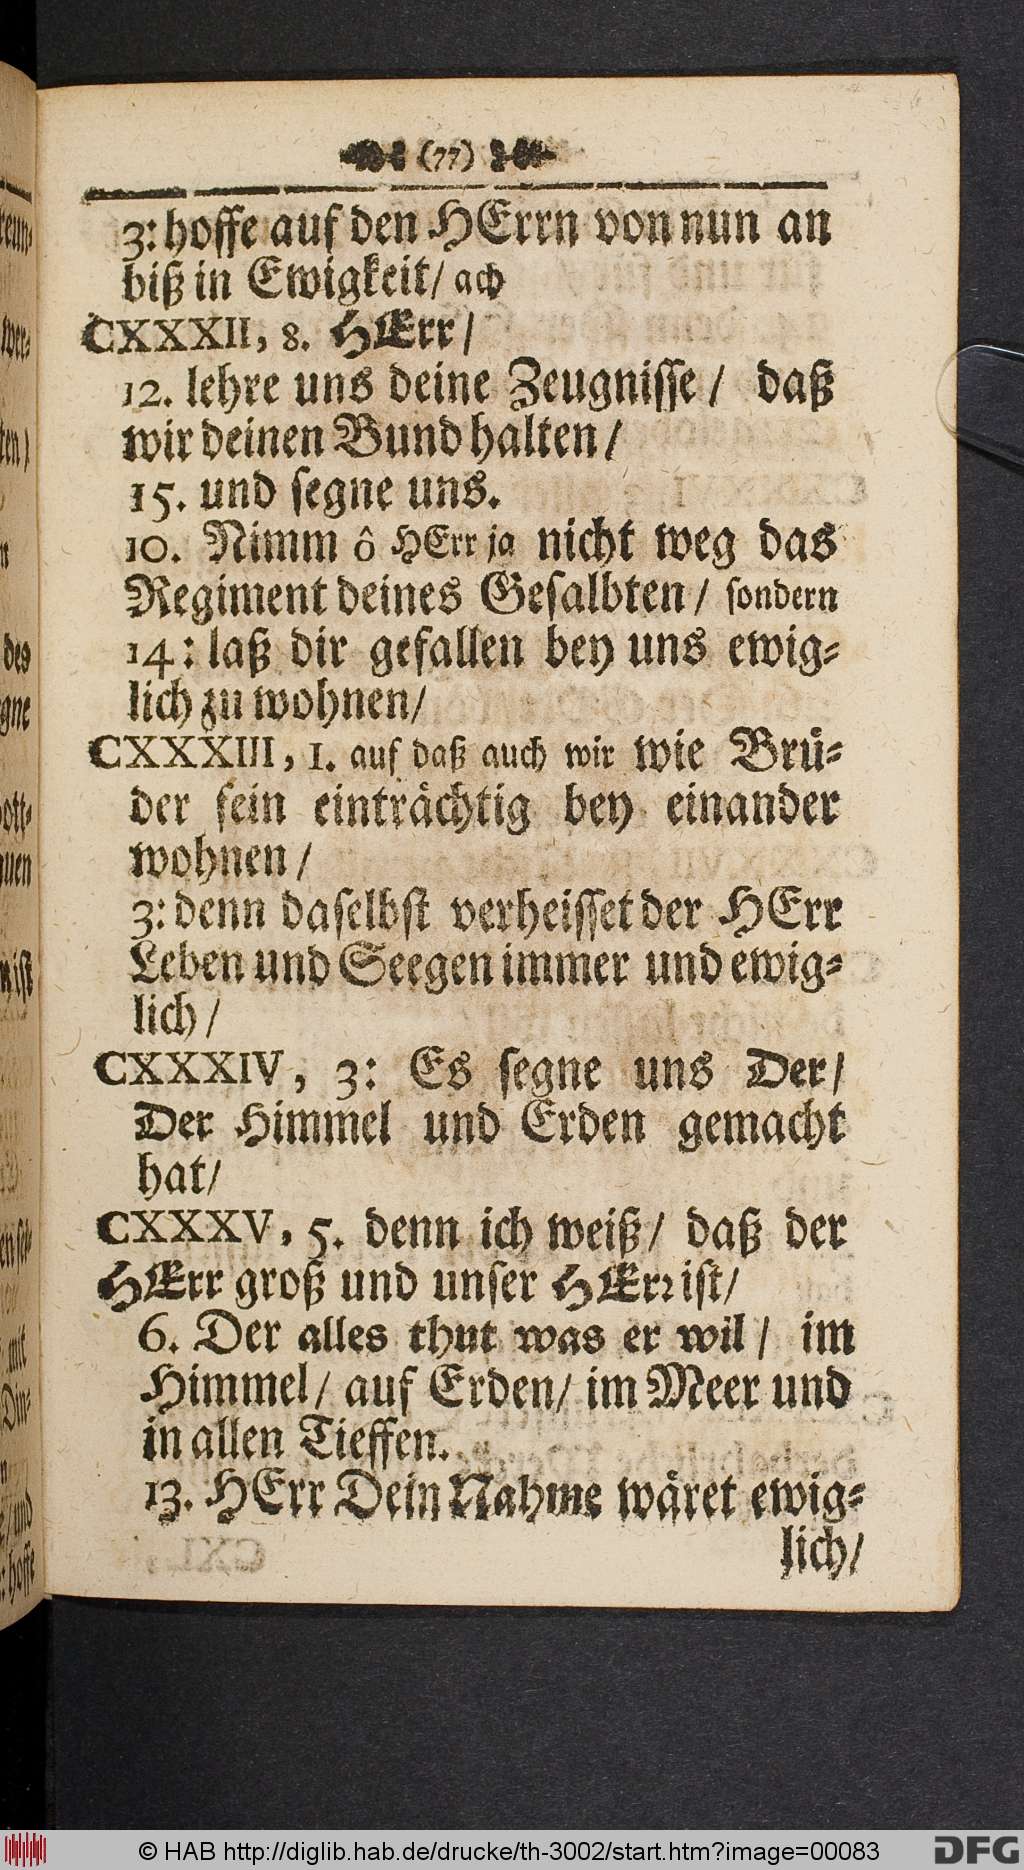 (77)
3: hoffe auf den HErrn von nun an
biß in Ewigkeit/ ach
CXXXII, 8. HErr/
12. lehre uns deine Zeugnisse / daß
wir deinen Bund halten /
15. und segne uns.
10. Nimm ô HErr ja nicht weg das
Regiment deines Gesalbten / sondern
14: laß dir gefallen bey uns ewig-
lich zu wohnen/
CXXXIII, 1. auf daß auch wir wie Brü-
der fein einträchtig bey einander
wohnen /
3: denn daselbst verheisset der HErr
Leben und Seegen immer und ewig-
lich /
CXXXIV, 3: Es segne uns Der/
Der Himmel und Erden gemacht
hat/
CXXXV, 5. denn ich weiß/ daß der
HErr groß und unser HErr ist/
6. Der alles thut was er wil / im
Himmel/ auf Erden/ im Meer und
in allen Tieffen.
13. HErr Dein Nahme wäret ewig-
lich/
des
gne
ist
mit
Din-
und
: hoffe
© HAB http://diglib.hab.de/drucke/th-3002/start.htm?image=00083
DFG